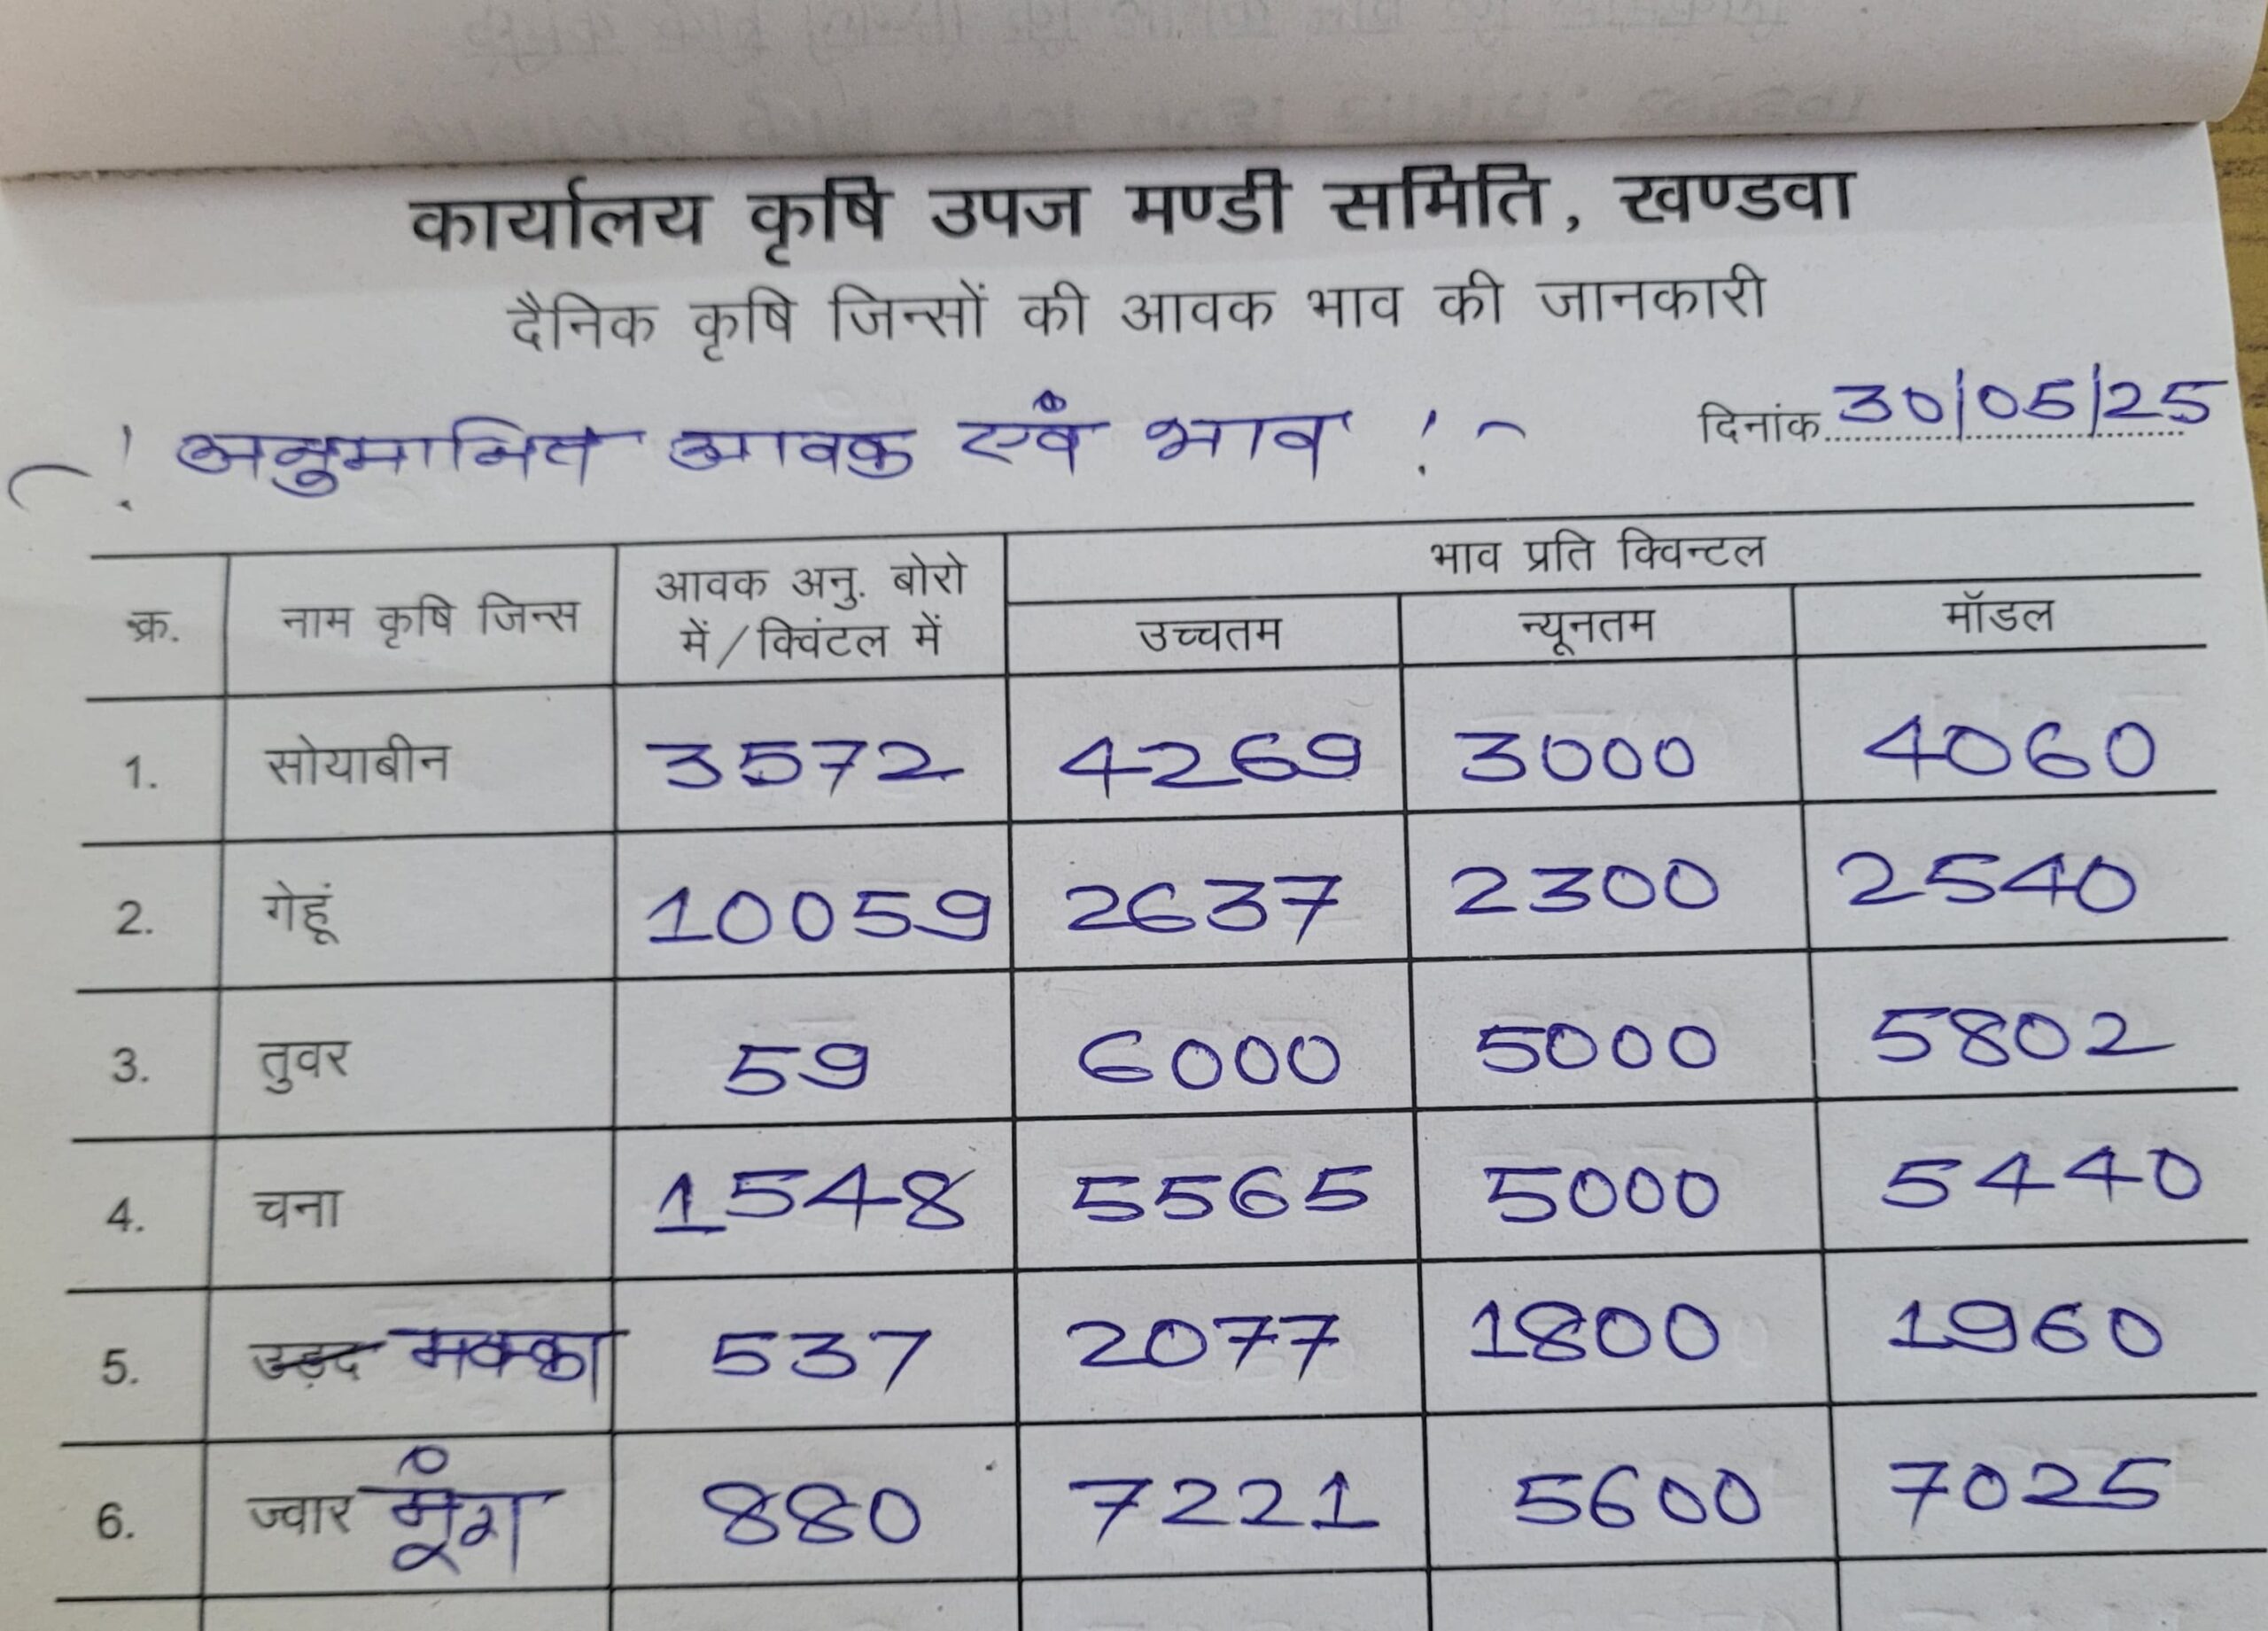 कार्यालय कृषि उपज मण्डी समिति, खण्डवा
दैनिक कृषि जिन्सों की आवक भाव की जानकारी
! अनुमानित आवक एवं भाव !
दिनांक 30/05/25
क्र. नाम कृषि जिन्स आवक अनु. बोरो में/क्विंटल में भाव प्रति क्विन्टल
उच्चतम न्यूनतम मॉडल
1. सोयाबीन 3572 4269 3000 4060
2. गेहूं 10059 2637 2300 2540
3. तुवर 59 6000 5000 5802
4. चना 1548 5565 5000 5440
5. उड़द मक्का 537 2077 1800 1960
6. ज्वार मूंग 880 7221 5600 7025